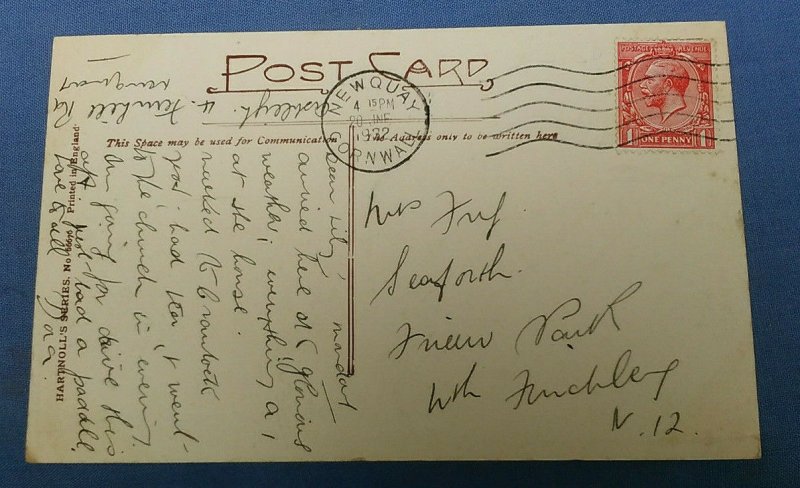 POST CARD
NEWQUAY
4 15PM
20 JNE
1932
CORNWALL
POSTAGE REVENUE
1 1
ONE PENNY
This Space may be used for Communication
The Address only to be written here
HARTNOLL'S SERIES. No Printed in England
Ashleigh. 4. Rd
Newquay
Monday
Dear Lily,
arrived here at glorious
weather, everything a, 1
at the house.
to Crantock
had tea, & went
to the church in evening.
Am going for drive this
aft, just had a paddle
Love to all
Mrs Fry
Seaforth.
Friern Park
Nth Finchley
N. 12.